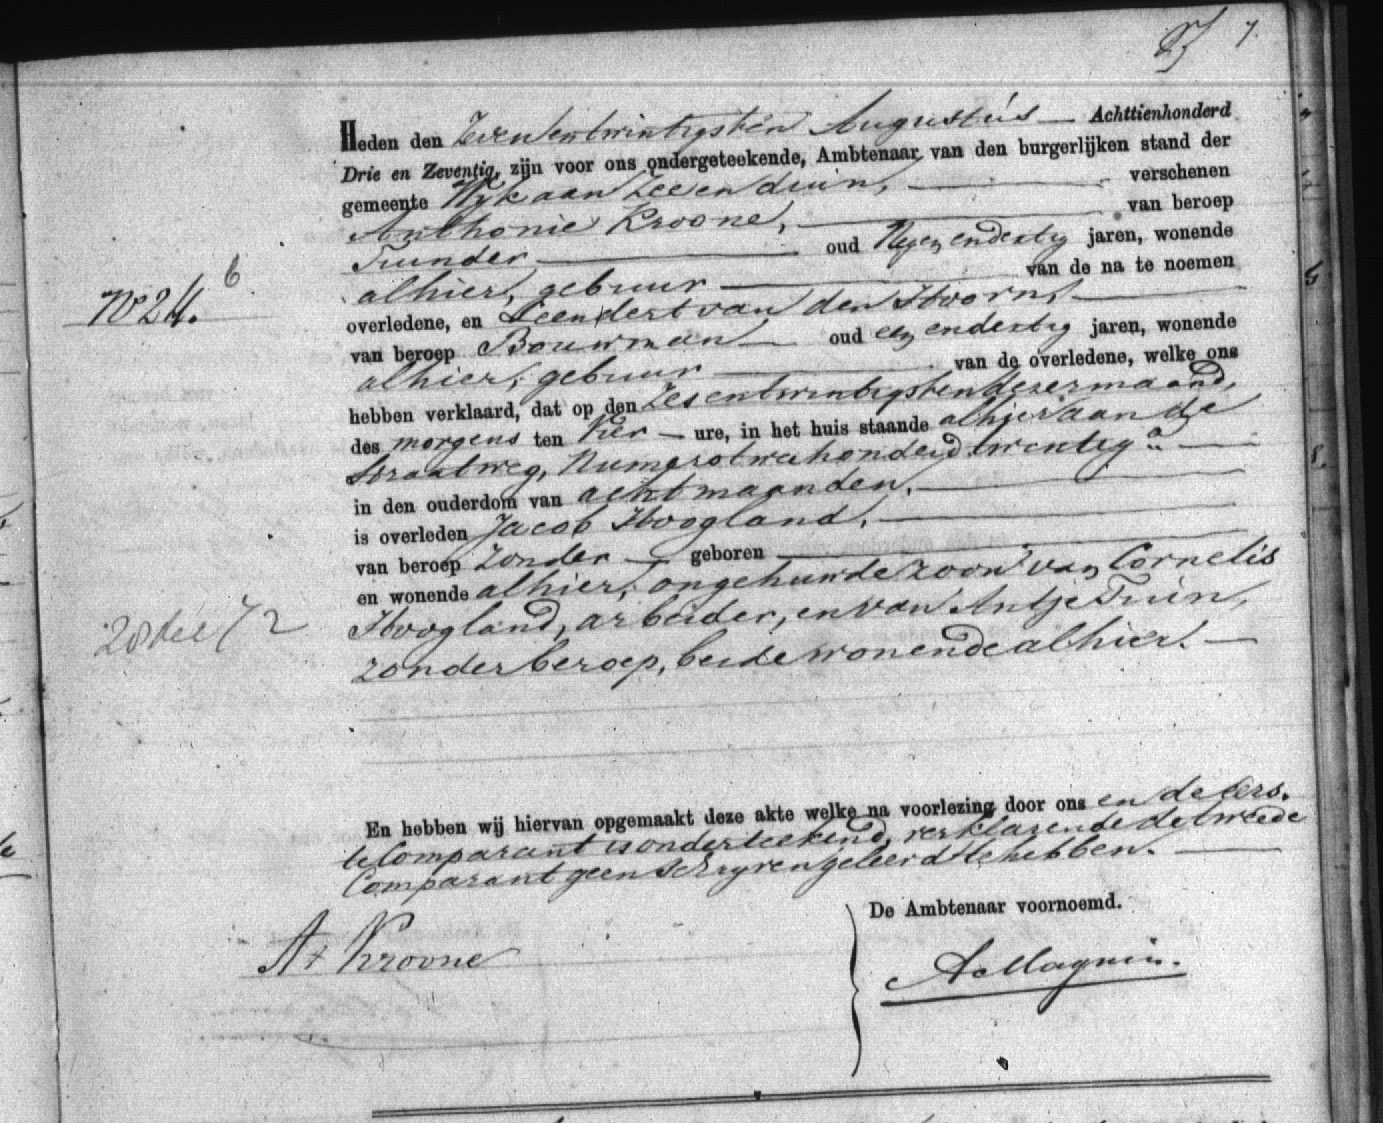 7.
Heden den Zevenentwintigsten Augustus Achttienhonderd
Drie en Zeventig, zijn voor ons ondergeteekende, Ambtenaar van den burgerlijken stand der
gemeente Wijk aan Zee en duin, verschenen
Anthonie Kroone, van beroep
Tuinder oud Negenendertig jaren, wonende
alhier, gebuur van de na te noemen
No 24. 6
overledene, en Leendert van den Hoorn,
van beroep Bouwman oud eenendertig jaren, wonende
alhier, gebuur van de overledene, welke ons
hebben verklaard, dat op den Zesentwintigsten dezer maand,
des morgens ten Vier ure, in het huis staande alhier aan de
Straatweg, Numero tweehonderd twintig a
in den ouderdom van acht maanden,
is overleden Jacob Hoogland,
van beroep zonder geboren
en wonende alhier, ongehuwde zoon van Cornelis
Hoogland, arbeider, en van Antje Tuin,
28 dec 72
zonder beroep, beide wonende alhier.
En hebben wij hiervan opgemaakt deze akte welke na voorlezing door ons en de eers-
te Comparant is onderteekend, verklarende de tweede
Comparant geen schryven geleerd te hebben.
De Ambtenaar voornoemd.
At Kroone